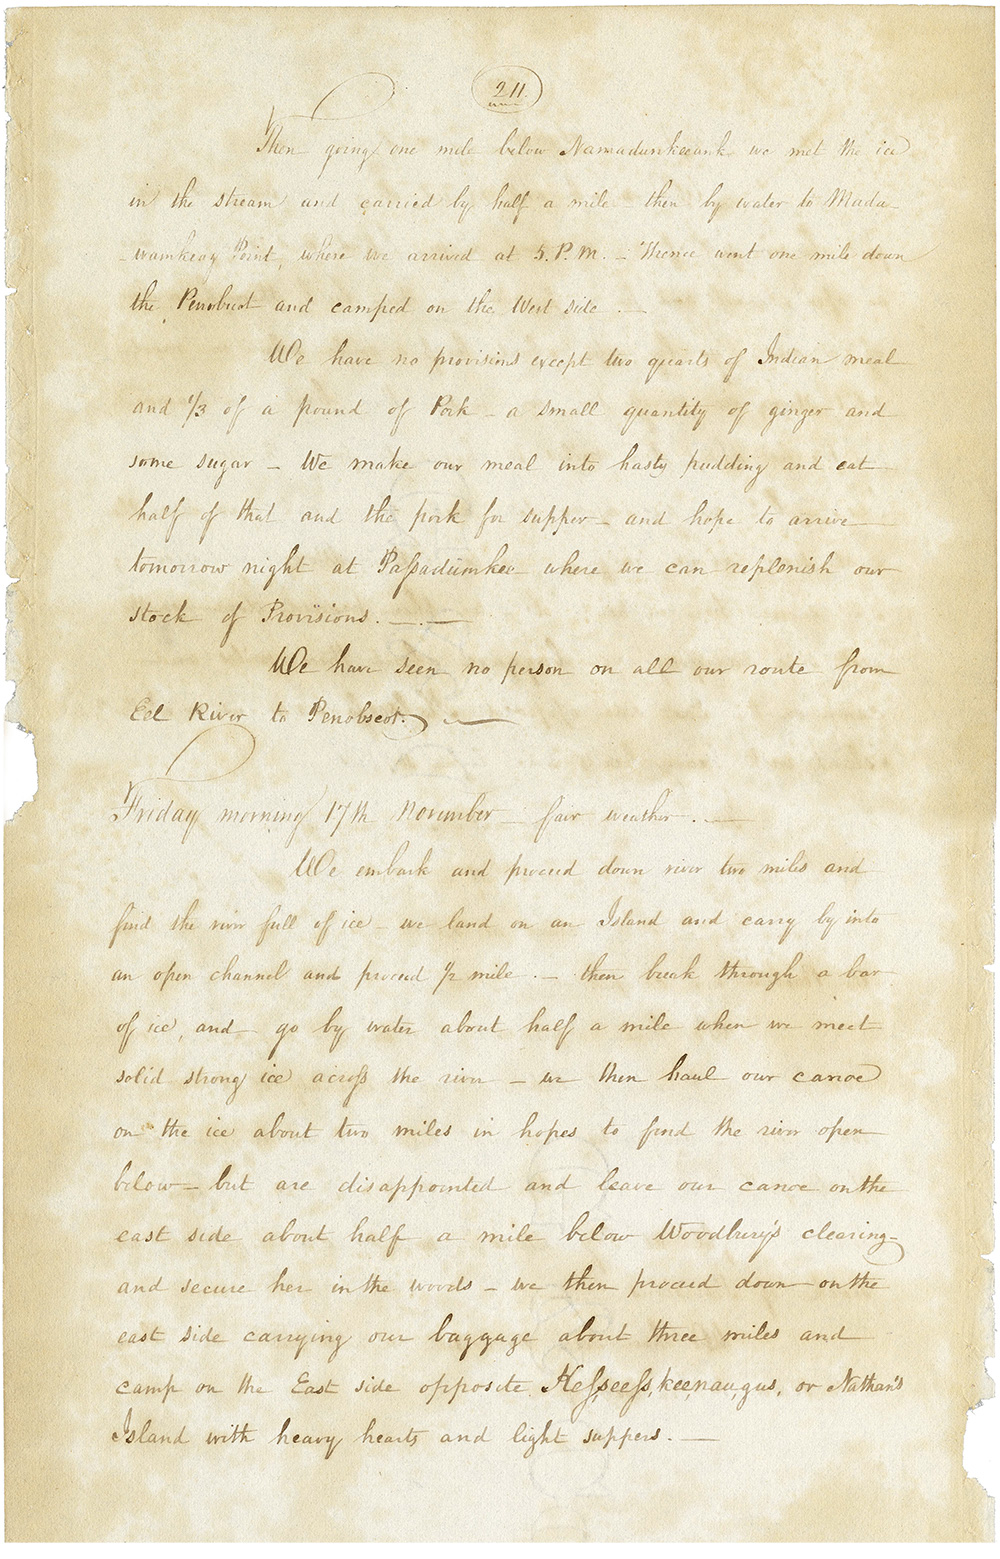 211.
Then going one mile below Namadunkeeunk we met the ice
in the stream and carried by half a mile – then by water to Mada-
-wamkeag Point, where we arrived at 5. P.M. – Thence went one mile down
the Penobscot and camped on the West side. —
We have no provisions except two quarts of Indian meal
and 1/3 of a pound of Pork – a small quantity of ginger and
some sugar – We make our meal into hasty pudding and eat
half of that and the pork for supper – and hope to arrive
tomorrow night at Paſsadumkee where we can replenish our
stock of Provisions. —.—
We have seen no person on all our route from
Eel River to Penobscot. —
Friday morning 17th November – fair weather. —
We embark and proceed down river two miles and
find the river full of ice – we land on an Island and carry by into
an open channel and proceed 1/2 mile. – then break through a bar
of ice, and go by water about half a mile when we meet
solid strong ice acroſs the river – we then haul our canoe
on the ice about two miles in hopes to find the river open
below – but are disappointed and leave our canoe on the
east side about half a mile below Woodbury's clearing –
and secure her in the woods – we then proceed down on the
east side carrying our baggage about three miles and
camp on the East side opposite Heſ,seeſs,kee,nau,gus, or Nathan's
Island with heavy hearts and light suppers. —